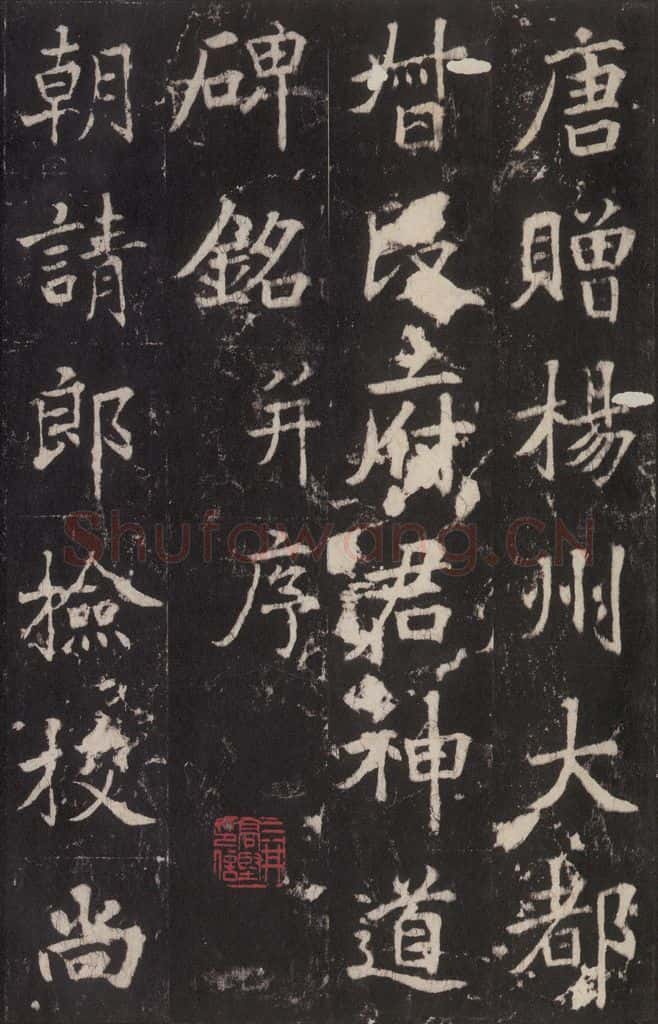 唐贈楊州大都
督段府君神道
碑銘并序
朝請郎檢校尚
三井
高堅
印信
Shufawang.CN